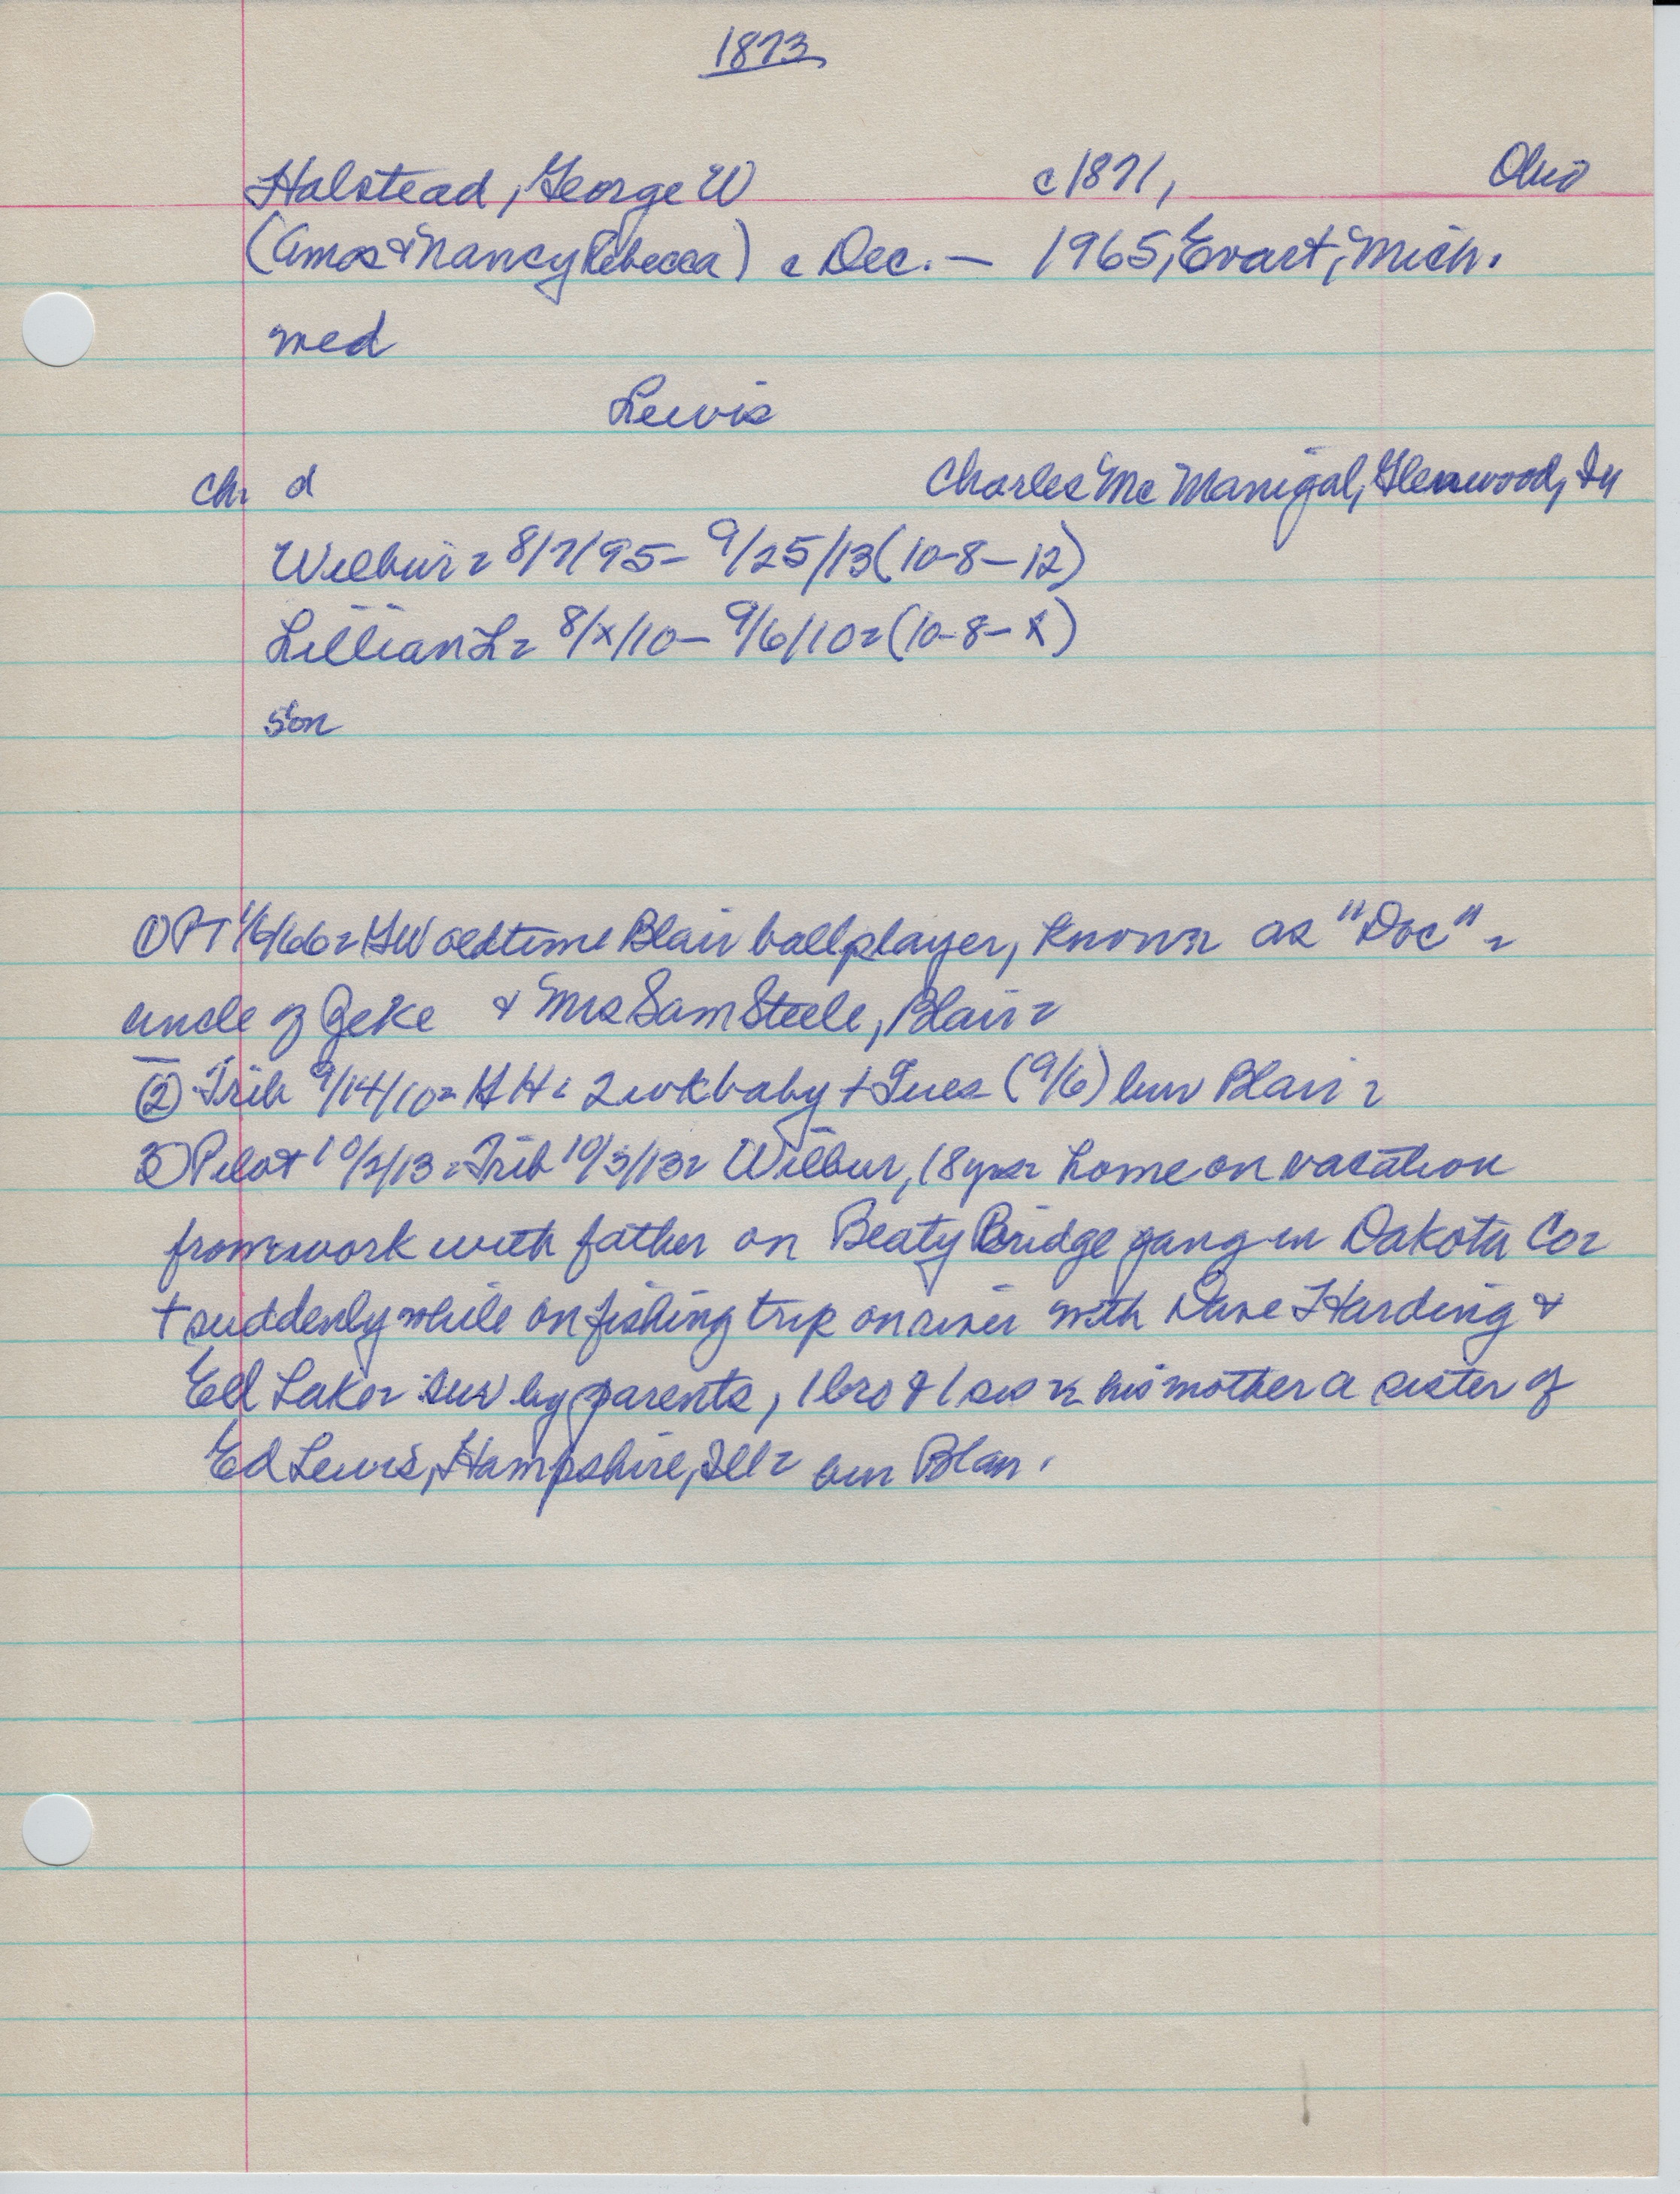 1873
Halstead, George W c 1871, Ohio
(Amos & Nancy Rebecca) c Dec. — 1965, Evart, Mich.
med
Lewis
Ch. d Charles McManigal, Glenwood, Ia
Wilbur = 8/7/95 - 9/25/13 (10-8-12)
Lillian L = 8/x/10 - 9/6/10 = (10-8-x)
son
① PT 1/6/66 = GW oldtime Blair ballplayer, known as "Doc" =
uncle of Zeke & Mrs Sam Steele, Blair =
② Trib 9/14/10 = GH = 2 wk baby + Tues (9/6) bur Blair =
3) Pilot 10/2/13 = Trib 10/3/13 = Wilbur, 18 yrs = home on vacation
from work with father on Beaty Bridge gang in Dakota Co =
+ suddenly while on fishing trip on river with Dave Harding &
Ed Laker = sur by parents, 1 bro & 1 sis = his mother a sister of
Ed Lewis, Hampshire, Ill = bur Blair.